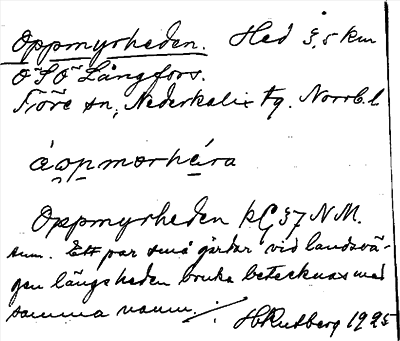 Oppmyrheden. Hed 3,5 km
O S O Långfors.
Töre sn, Nederkalix tg. Norrb. l
Oppmyrheden
sum. Ett par små gårdar vid landsvä-
gen längs heden bruka betecknas med
samma namn. 
H Rudberg 1925